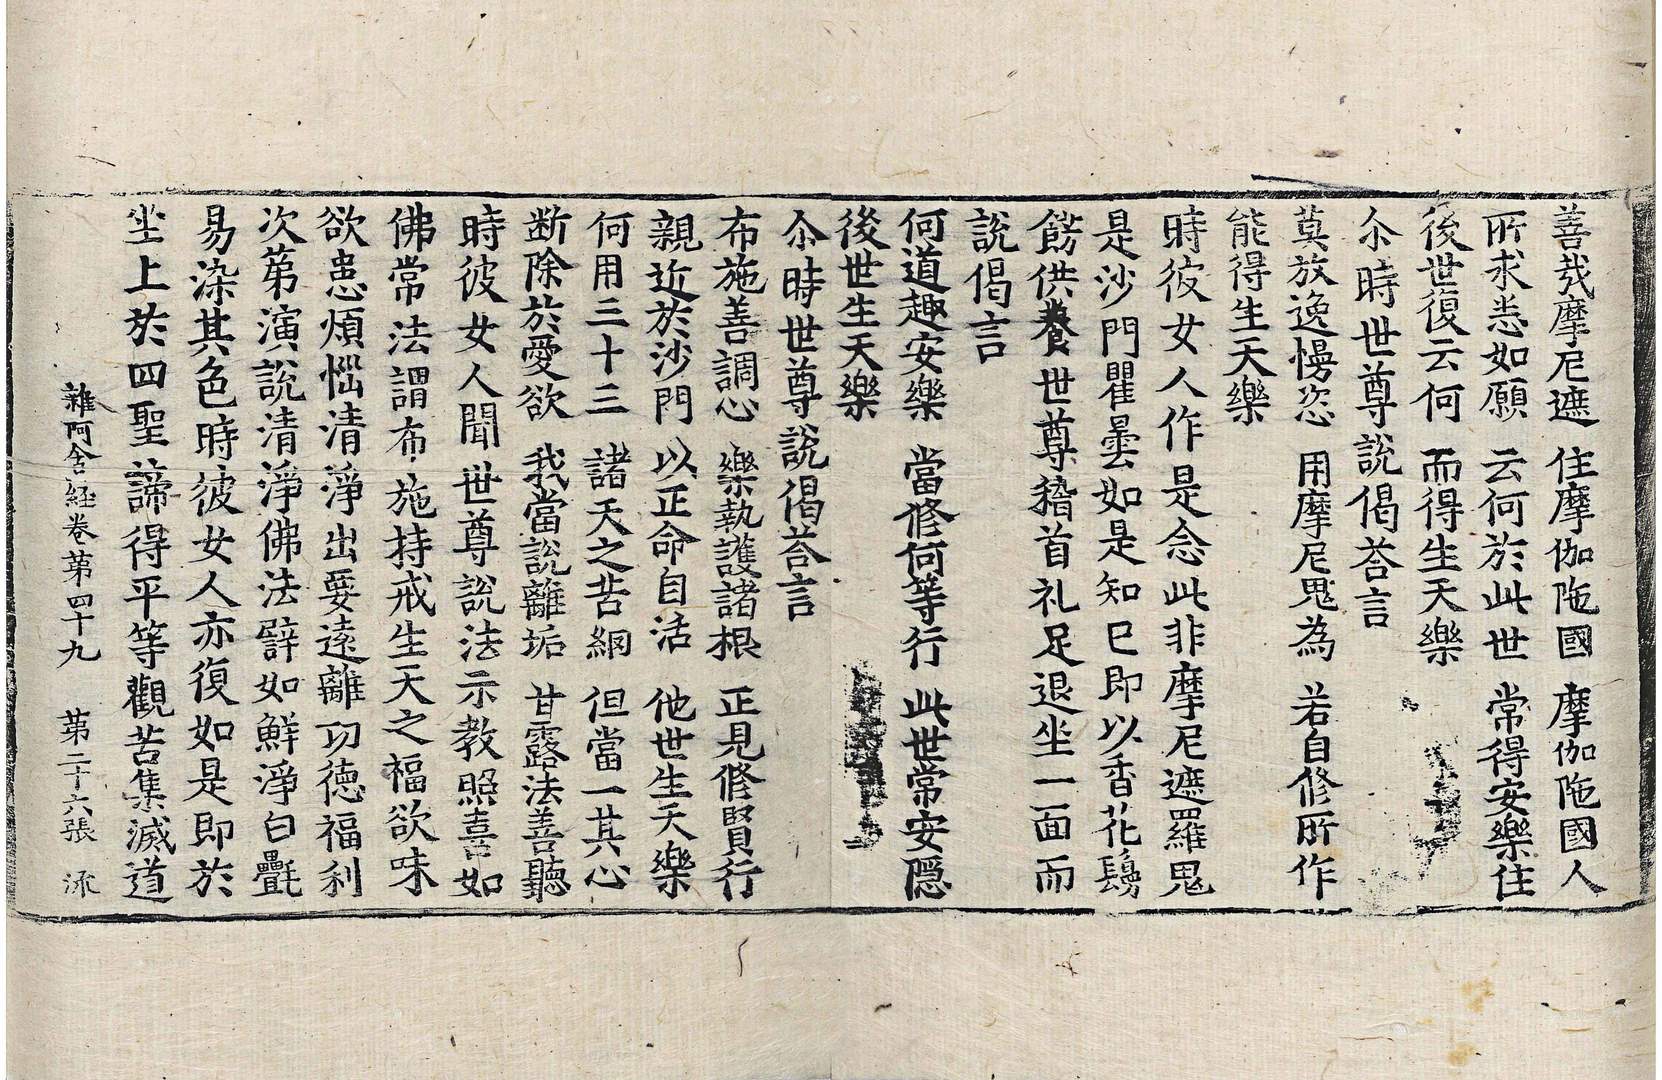 善㢤摩尼遮 住摩伽陁國 摩伽陁國人
所求悉如願 云何於此世 常得安樂住
後世復云何 而得生天樂
尒時世尊說偈荅言
莫放逸慢恣 用摩尼鬼為 若自修所作
能得生天樂
時彼女人作是念此非摩尼遮羅鬼
是沙門瞿曇如是知已即以香花鬘
餝供養世尊稽首礼足退坐一面而
說偈言
何道趣安樂 當修何等行 此世常安隱
後世生天樂
尒時世尊說偈荅言
布施善調心 樂執護諸根 正見修賢行
親近於沙門 以正命自活 他世生天樂
何用三十三 諸天之苦網 但當一其心
斷除於愛欲 我當說離垢 甘露法善聽
時彼女人聞世尊說法示教照喜如
佛常法謂布施持戒生天之福欲味
欲患煩惱清淨出要遠離功徳福利
次第演說清淨佛法譬如鮮淨白㲲
易染其色時彼女人亦復如是即於
坐上於四聖諦得平等觀苦集滅道
雜阿含経卷第四十九 第二十六張 流